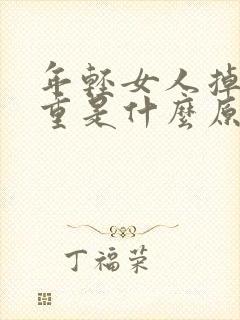 年轻女人掉
重是什麼原
丁福荣